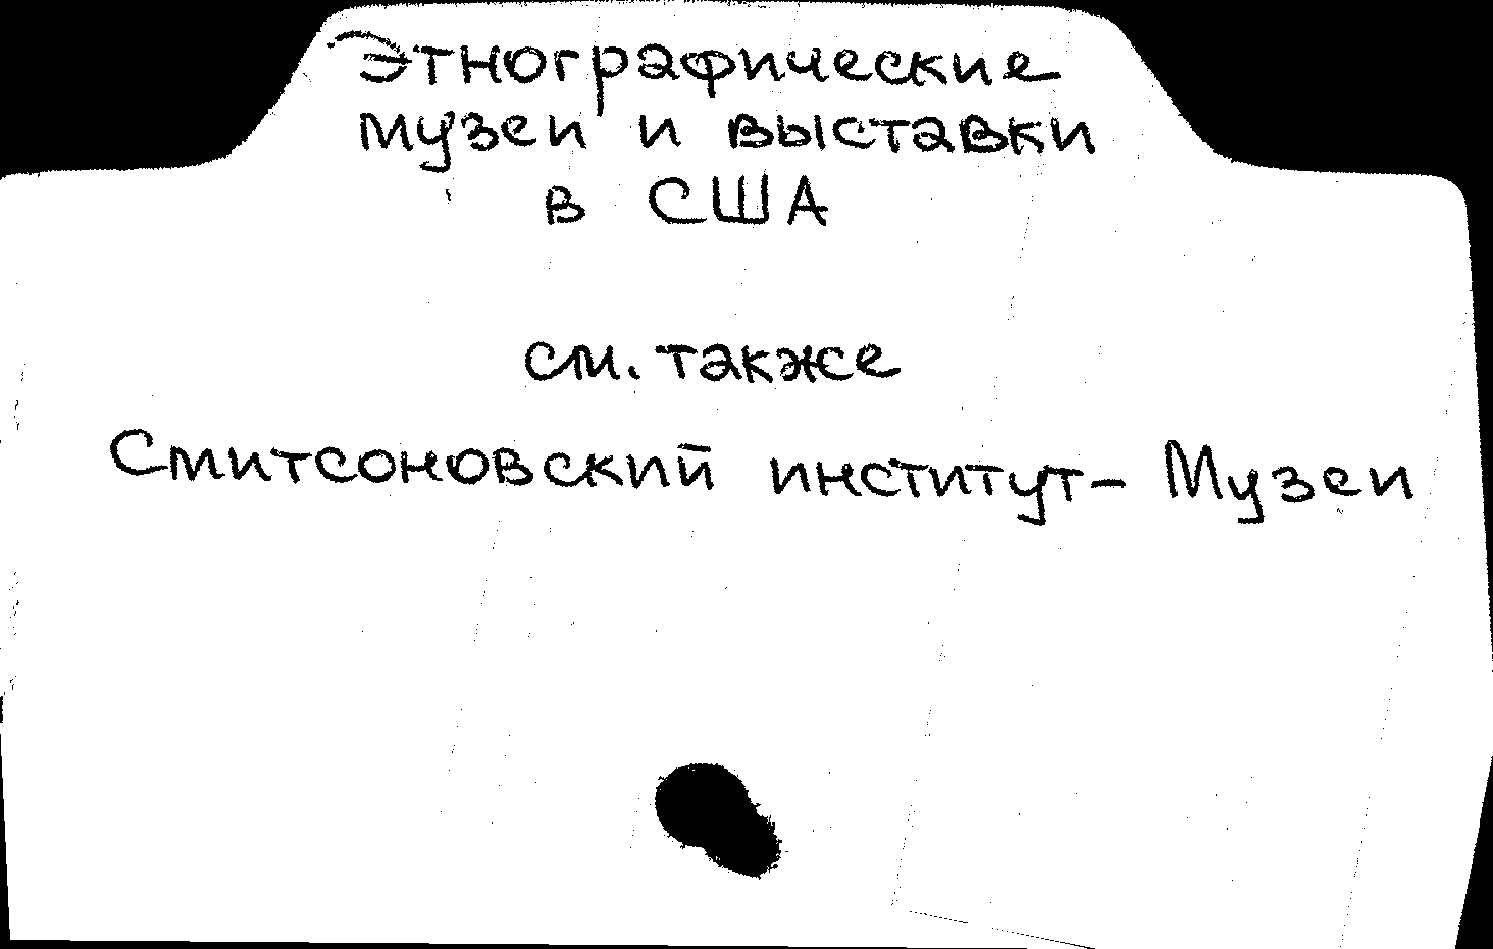 Этнографические
музеи и выставки
в США
см. также
Смитсоновский институт - Музеи